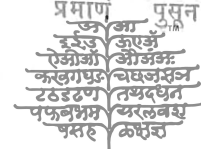 प्रमाणं पुसून
अ आ
इ ई उ ऊ ए ऍ
ऐ ओ ऑ औ अं अः
क ख ग घ ङ च छ ज झ ञ
ट ठ ड ढ ण त थ द ध न
प फ ब भ म य र ल व श
ष स ह ळ क्ष ज्ञ